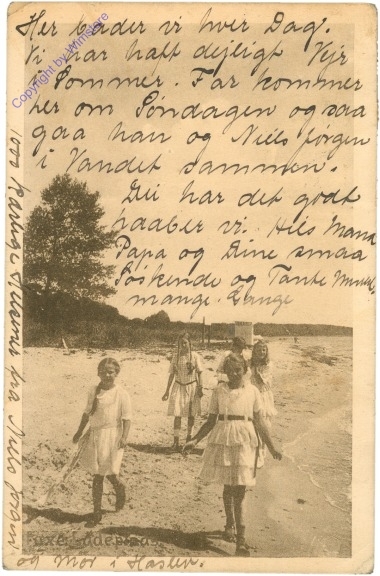 Her bader vi hver Dag.
Vi har haft dejligt Vejr
i Sommer. Far kommer
her om Søndagen og saa
gaa han og Niels Jørgen
i Vandet sammen.
Du har det godt
haaber vi. Hils Mama
Papa og Dine smaa
Søskende og Tante
mange Gange
1000 kærlige Hilsener fra Niels Jørgen
og Mor i Haslev.
Copyright by Winstore
Faxe Ladeplads